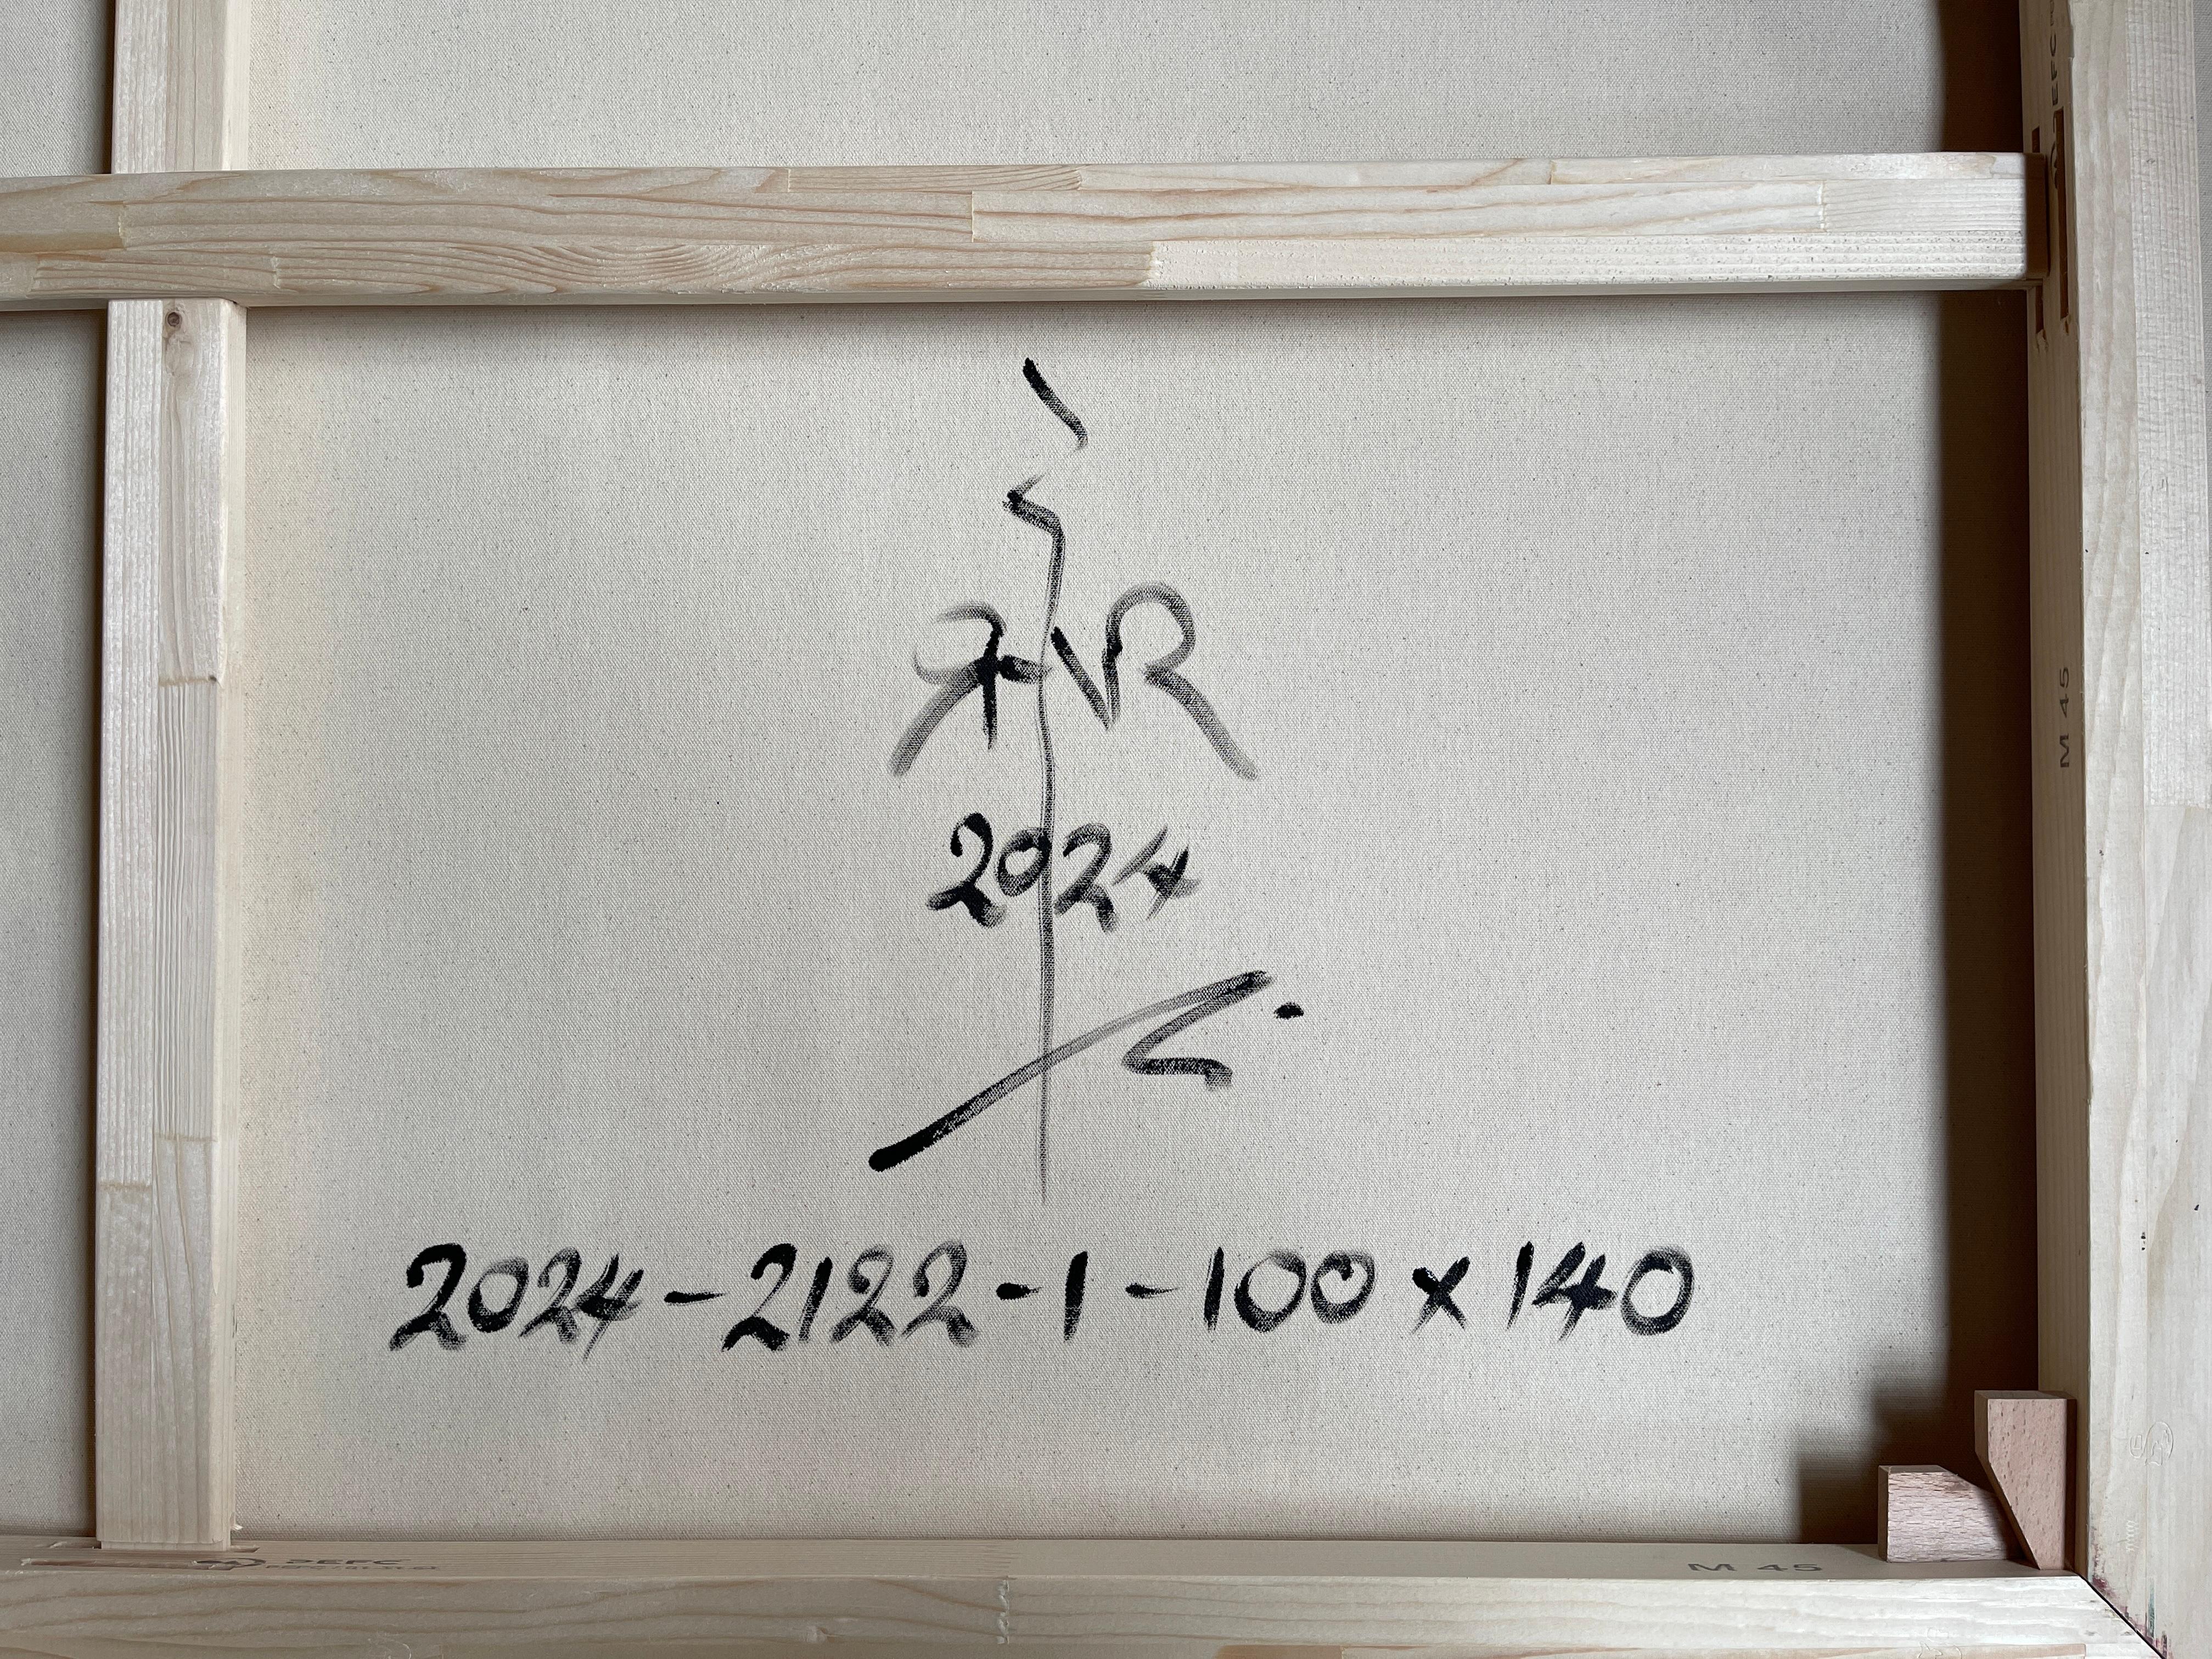 2024
2024-2122-1-100 x 140
M 45
M 45